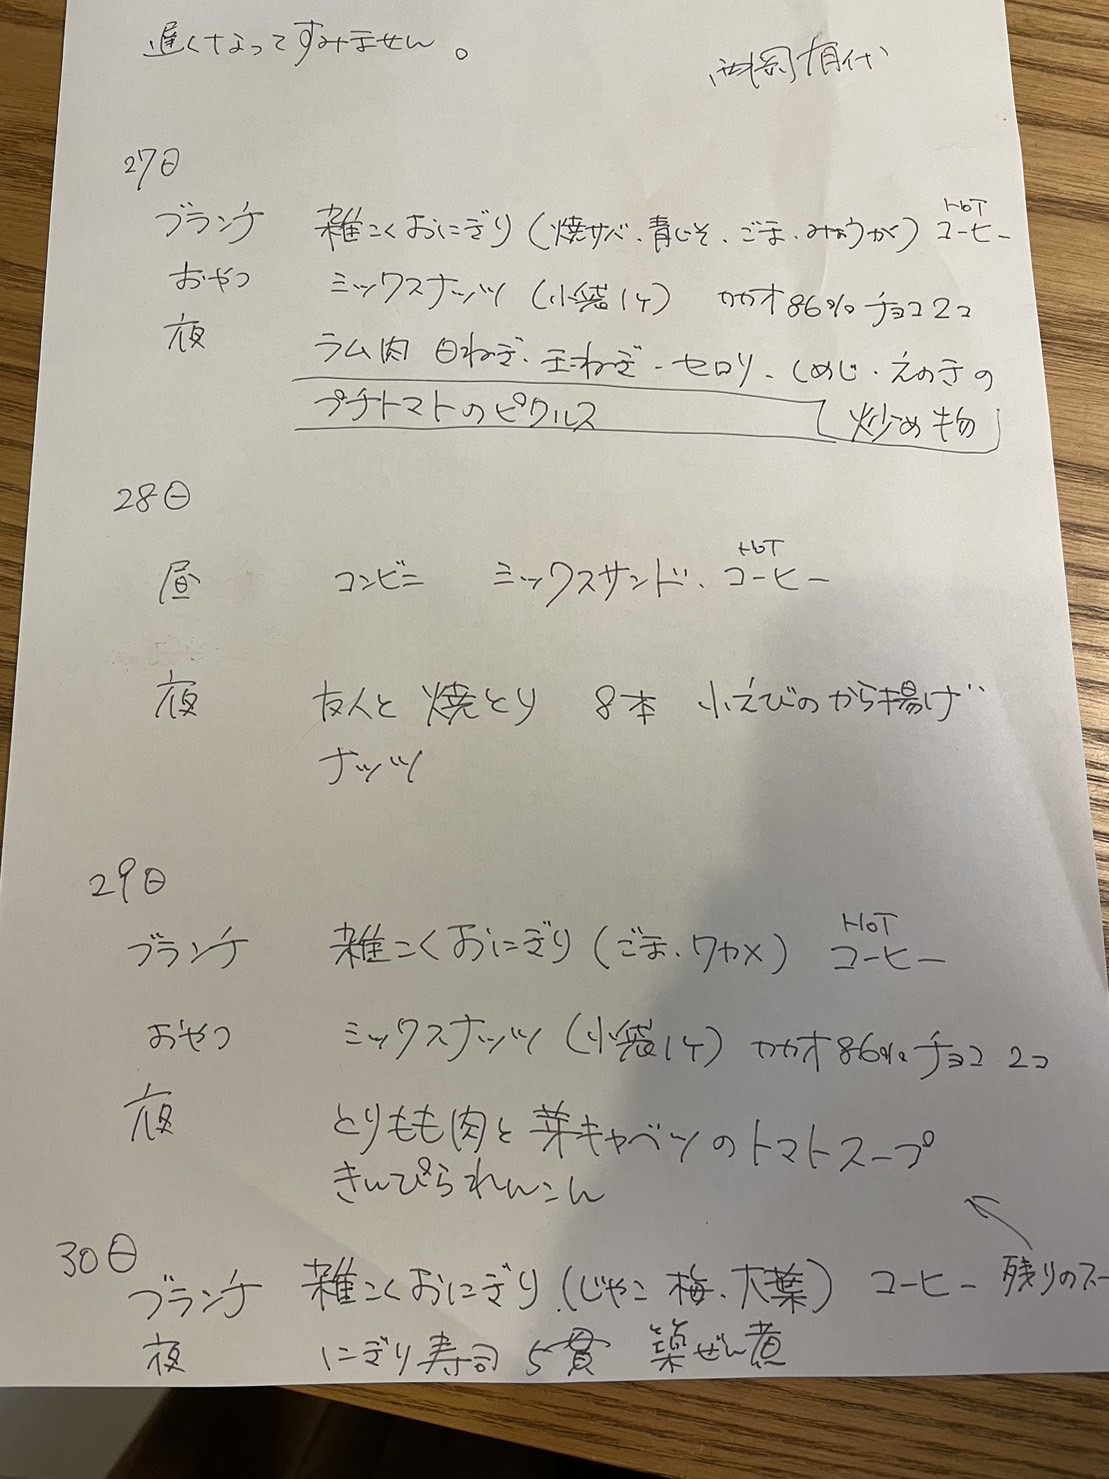 遅くなってすみません。
西岡有代
27日
ブランチ 雑こくおにぎり(焼サバ、青じそ、ごま、みょうが) HOT コーヒー
おやつ ミックスナッツ (小袋1ケ) カカオ86%チョコ2コ
夜 ラム肉 白ねぎ、玉ねぎ、セロリ、しめじ、えのきの
プチトマトのピクルス 炒め物
28日
昼 コンビニ ミックスサンド、HOT コーヒー
夜 友人と 焼とり 8本 小えびのから揚げ
ナッツ
29日
ブランチ 雑こくおにぎり(ごま、ワカメ) HOT コーヒー
おやつ ミックスナッツ (小袋1ケ) カカオ86%チョコ 2コ
夜 とりもも肉と芽キャベツのトマトスープ
きんぴられんこん
30日
ブランチ 雑こくおにぎり(じゃこ 梅、大葉) コーヒー 残りのスー
夜 にぎり寿司 5貫 築ぜん煮